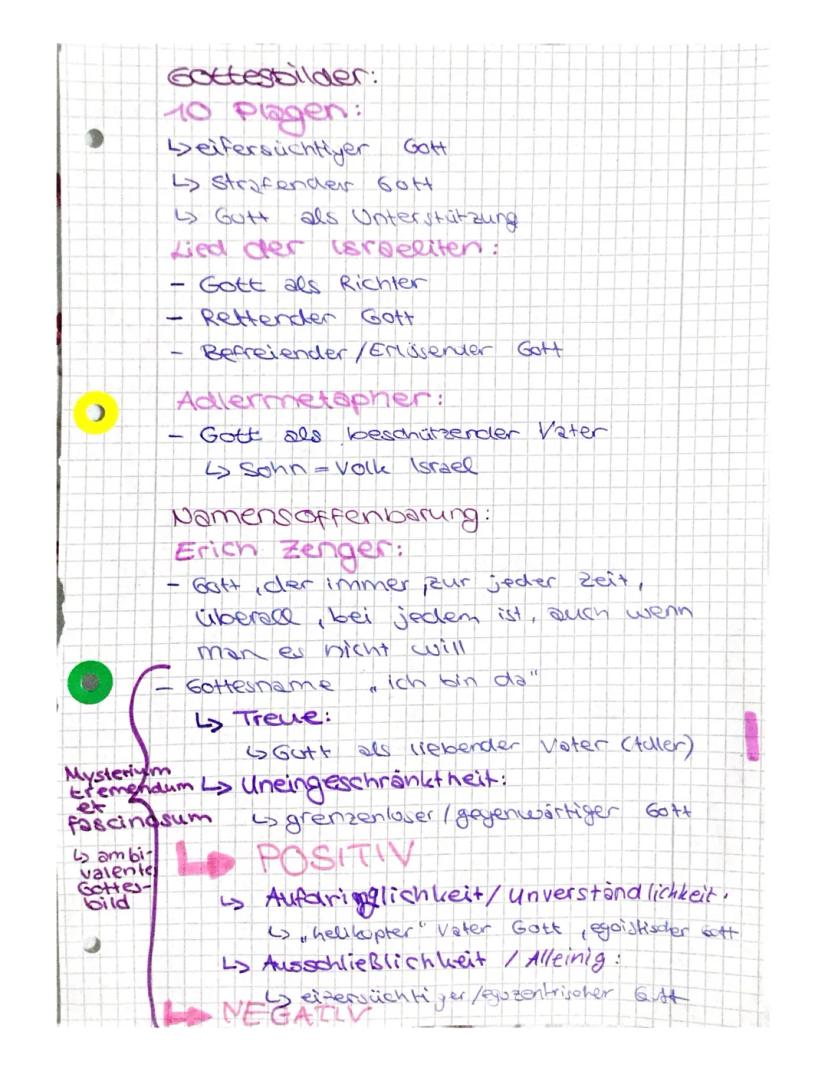 Gottesbilder:
10 Plagen:
↳ eifersüchtiger Gott
↳ strafender Gott
↳ Gott als Unterstützung
Lied der Israeliten:
- Gott als Richter
- Rettender Gott
- Befreiender/Erlösender Gott
Adlermetapher:
- Gott als beschützender Vater
↳ Sohn = Volk Israel
Namensoffenbarung:
Erich Zenger:
- Gott, der immer, zur jeder Zeit,
überall, bei jedem ist, auch wenn
man es nicht will
- Gottesname „ich bin da"
↳ Treue:
↳ Gott als liebender Vater (Adler)
Mysterium
tremendum
et
fascinosum
↳ ambi-
valente
Gottes-
bild
↳ Uneingeschränktheit:
↳ grenzenloser/gegenwärtiger Gott
↳ POSITIV
↳ Aufdringlichkeit/Unverständlichkeit.
↳ „helikopter" Vater Gott, egoistischer Gott
↳ Ausschließlichkeit / Alleinig:
↳ eifersüchtiger/egozentrischer Gott
↳ NEGATIV